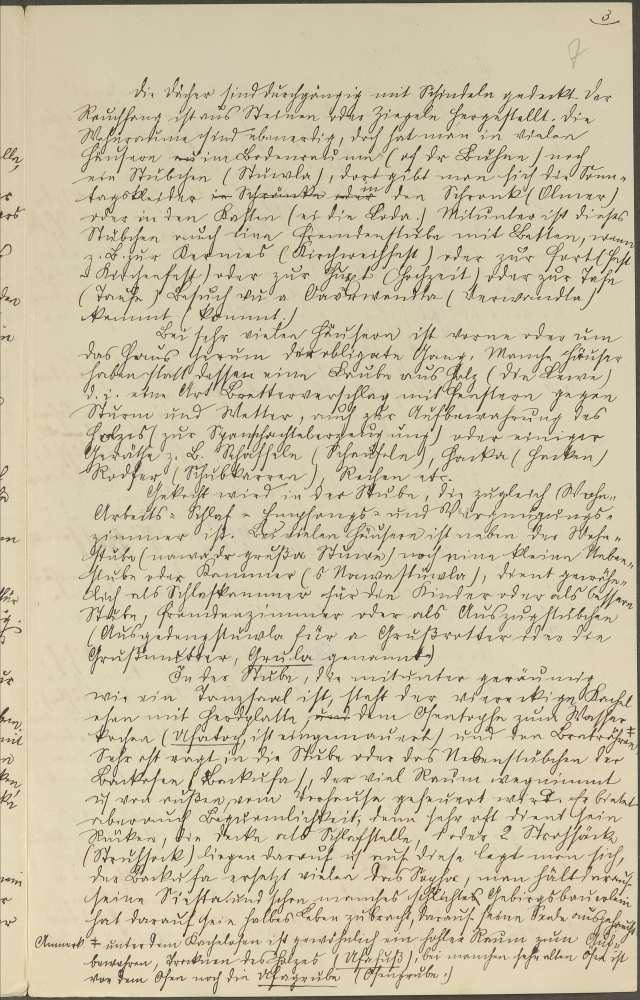 3
7
Die Dächer sind durchgängig mit Schindeln gedeckt. Der
Rauchfang ist aus Steinen oder Ziegeln hergestellt. Die
Wohnräume sind ebenerdig, doch hat man in vielen
Häusern im Bodenraume (of dr Bühne) noch
ein Stübchen (Stüwla), dort gibt man sich die Sonn-
tagskleider in Schränke oder in den Schronk (Olmer)
oder in den Kasten (ei die Loda.) Mitunter ist dieses
Stübchen auch eine Fremdenstube mit Betten, wenn
z. B. zur Kermes (Kirchweihfest) oder zur Fort (Fest
= Kirchenfest) oder zur Huxt (Hochzeit) oder zur Tefe
(Taufe) Besuch vu a Verwandta (Verwandte)
kemmt (kommt.)
Bei sehr vielen Häusern ist vorne oder um
das Haus herum der obligate Gang. Manche Häuser
haben statt dessen eine Laube aus Holz (die Lewe)
d. i. eine Art Bretterverschlag mit Fenstern gegen
Sturm und Wetter, auch zur Aufbewahrung des
Holzes (zur Spanschachtelerzeugung) oder einiger
Geräthe z. B. Schaffeln (Schaufeln), Hacka (Hacken)
Rodber (Schubkarren), Rechen etc.
Gekocht wird in der Stube, die zugleich Wohn-
Arbeits- Schlaf- Empfangs- und Vergnügungs-
zimmer ist. Bei vielen Häusern ist neben der Wohn-
stube (nawa dr grußa Stuwe) noch eine kleine Neben-
stube oder Kammer (s Nawastüwla), dient gewöhn-
lich als Schlafkammer für die Kinder oder als bessere
Stube, Fremdenzimmer oder als Auszugstübchen
(Ausgedengstüwla für a Grußvotter oder die
Grußmutter, Grula genannt.)
In der Stube, die mitunter geräumig
wie ein Tanzsaal ist, steht der viereckige Kachel
ofen mit Herdplatte, und dem Ofentopfe zum Wasser
kochen (Ufatoop, ist eingemauert) und den Bratröhren ‡
Sehr oft ragt in die Stube oder das Nebenstübchen der
Backofen (Backufa), der viel Raum wegnimmt
u von außen, vom Vorhause geheizt wird. Er bietet
aber auch Bequemlichkeit; denn sehr oft dient sein
Rücken, die Decke als Schlafstelle, 1 oder 2 Strohsäcke
(Struhsock) liegen darauf u auf diese legt man sich,
der Backufa ersetzt vielen das Sopha, man hält darauf
seine Siesta und schon manches schlichte Gebirgsbäuerlein
hat darauf sein halbes Leben zubracht, darauf seine Seele ausgehaucht
Anmerk ‡ unter dem Kachelofen ist gewöhnlich ein hohler Raum zum Auf-
bewahren, Trocknen des Holzes (Ufafuß), bei manchen sehr alten Ofen ist
vor dem Ofen noch die Ufagrube (Ofengrube.)